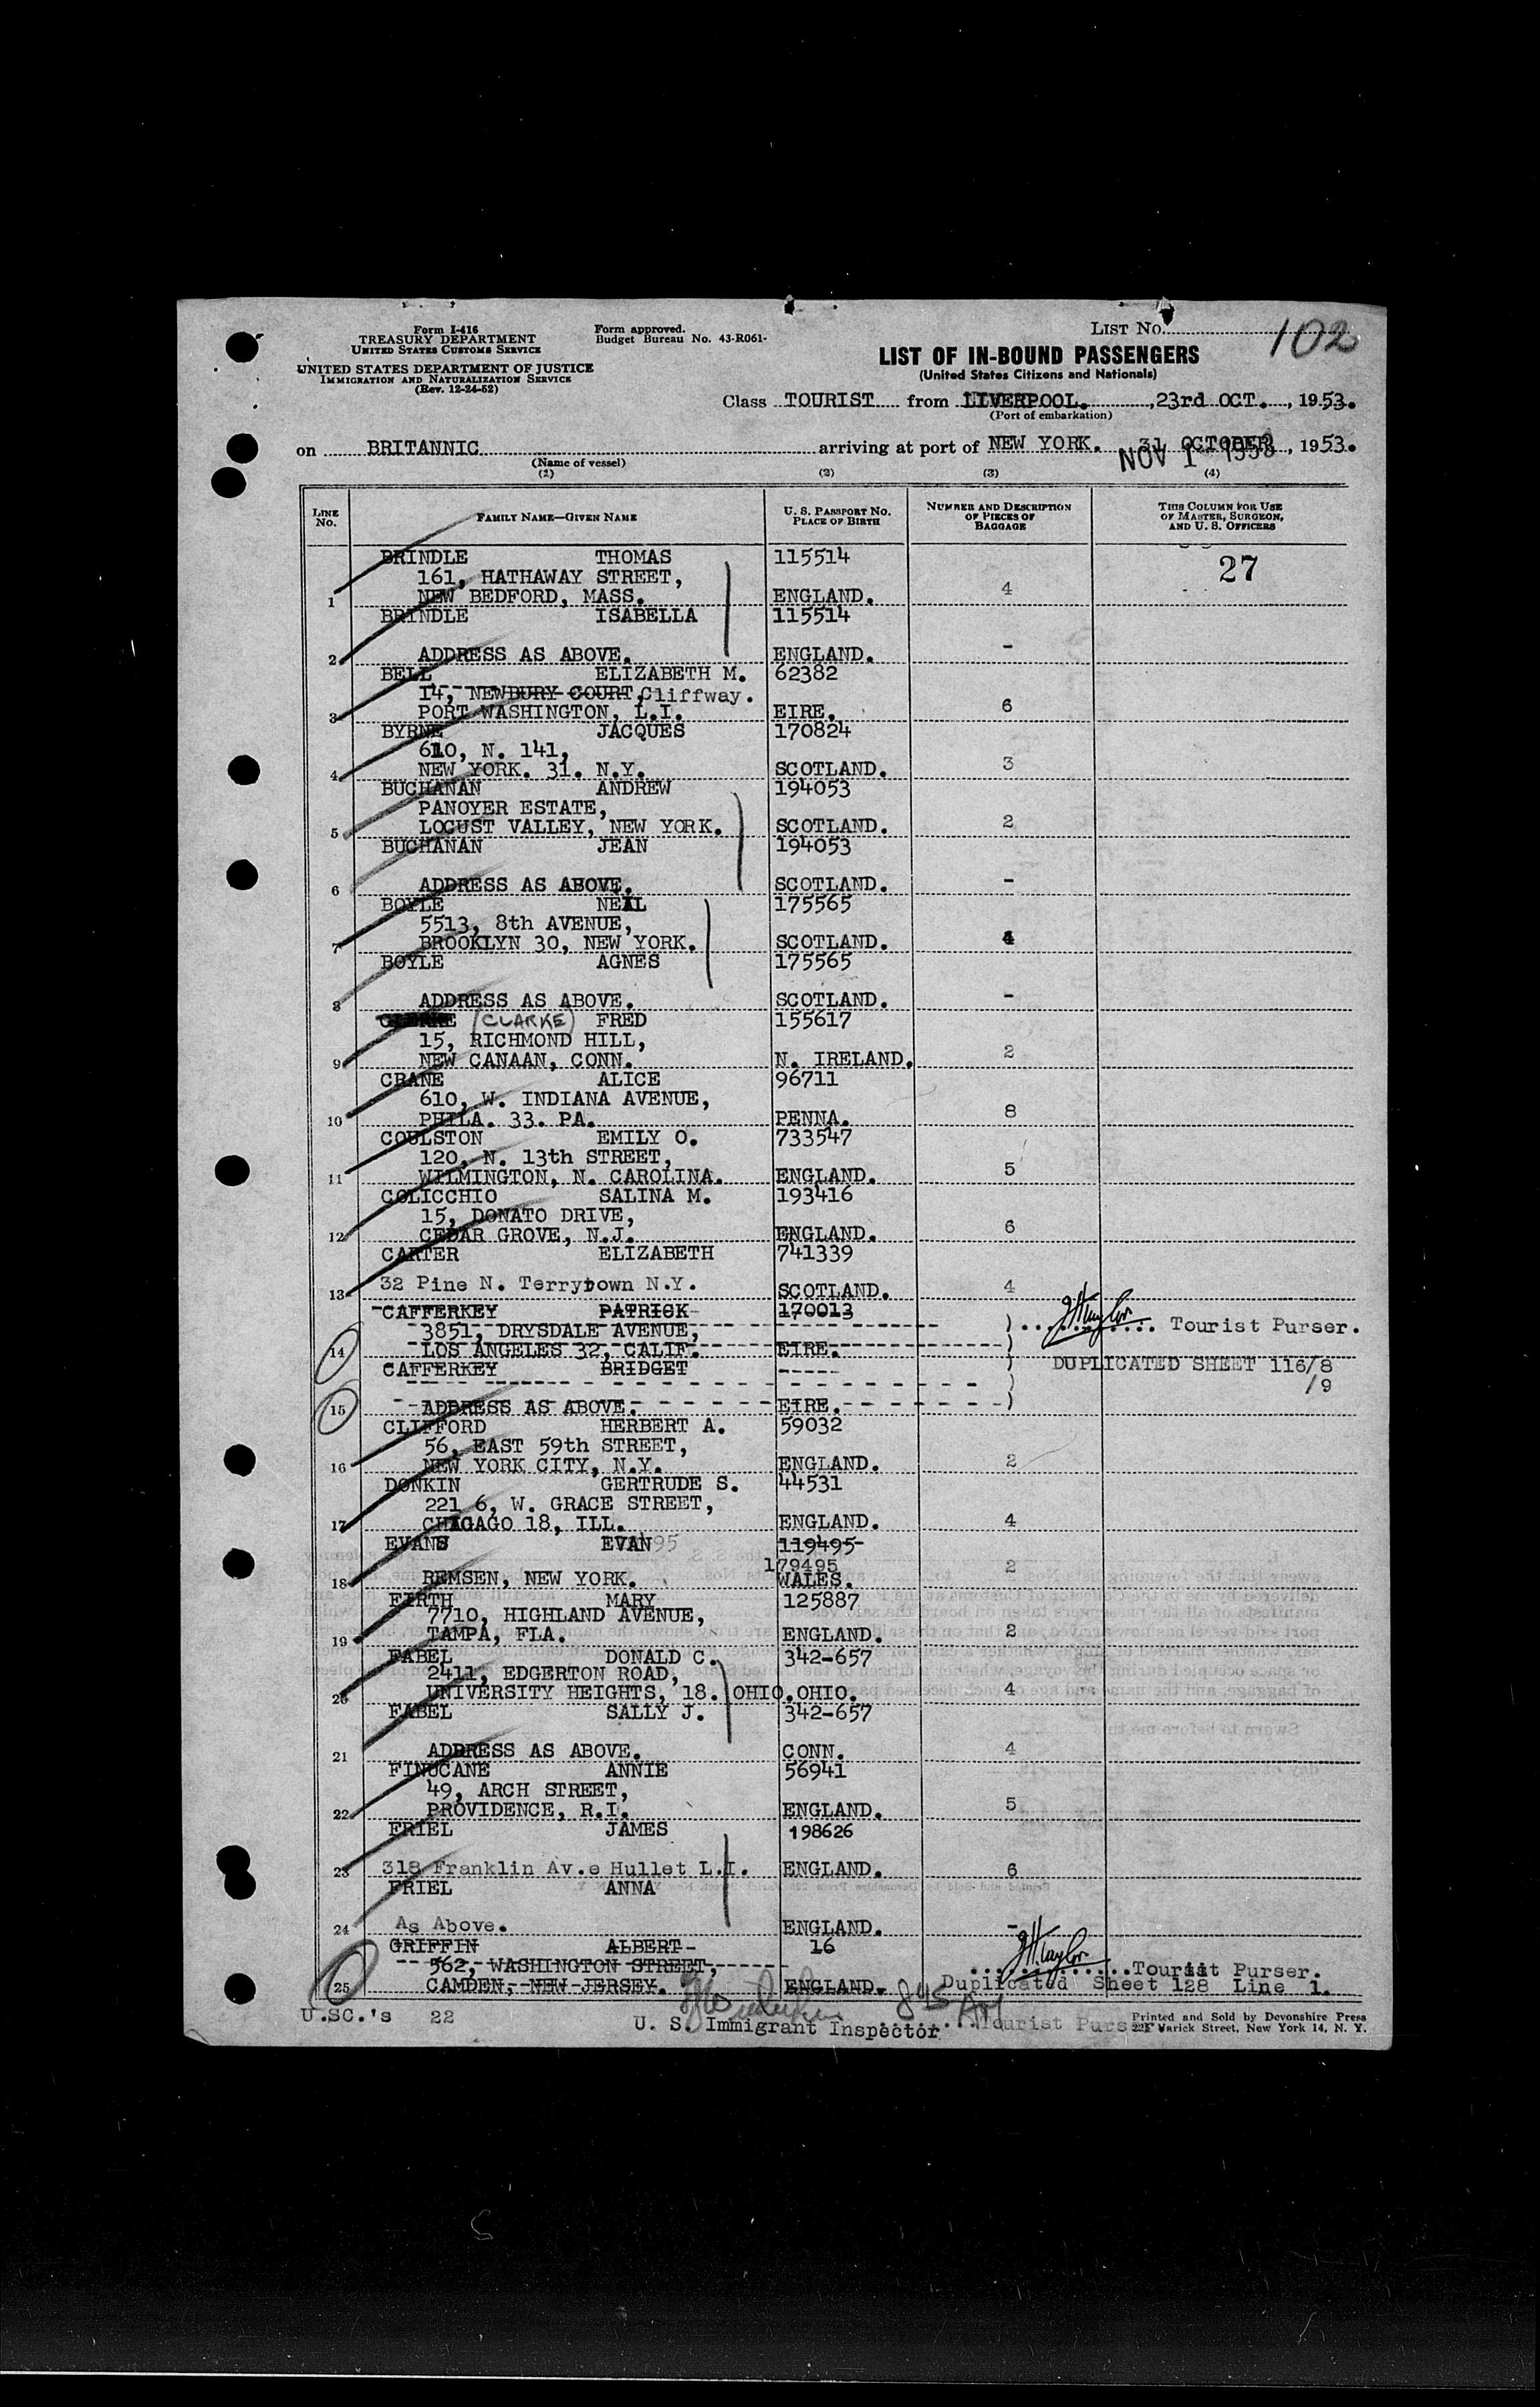 Form I-416
TREASURY DEPARTMENT
UNITED STATES CUSTOMS SERVICE
UNITED STATES DEPARTMENT OF JUSTICE
IMMIGRATION AND NATURALIZATION SERVICE
(Rev. 12-24-52)
Form approved.
Budget Bureau No. 43-R061-
LIST No. 102
LIST OF IN-BOUND PASSENGERS
(United States Citizens and Nationals)
Class TOURIST from LIVERPOOL. , 23rd OCT. , 1953.
(Port of embarkation)
on BRITANNIC arriving at port of NEW YORK. 31 OCTOBER , 1953.
NOV 1 - 1953
(Name of vessel)
(1) (2) (3) (4)
LINE No. FAMILY NAME—GIVEN NAME U. S. PASSPORT NO. PLACE OF BIRTH NUMBER AND DESCRIPTION OF PIECES OF BAGGAGE THIS COLUMN FOR USE OF MASTER, SURGEON, AND U. S. OFFICERS
BRINDLE THOMAS 115514 27
161, HATHAWAY STREET,
1 NEW BEDFORD, MASS. ENGLAND. 4
BRINDLE ISABELLA 115514
2 ADDRESS AS ABOVE. ENGLAND. -
BELL ELIZABETH M. 62382
14, NEWBURY COURT, Cliffway.
3 PORT WASHINGTON, L.I. EIRE. 6
BYRNE JACQUES 170824
610, N. 141,
4 NEW YORK. 31. N.Y. SCOTLAND. 3
BUCHANAN ANDREW 194053
PANOYER ESTATE,
5 LOCUST VALLEY, NEW YORK. SCOTLAND. 2
BUCHANAN JEAN 194053
6 ADDRESS AS ABOVE. SCOTLAND. -
BOYLE NEIL 175565
5513, 8th AVENUE,
7 BROOKLYN 30, NEW YORK. SCOTLAND. 4
BOYLE AGNES 175565
8 ADDRESS AS ABOVE. SCOTLAND. -
(CLARKE) FRED 155617
15, RICHMOND HILL,
9 NEW CANAAN, CONN. N. IRELAND. 2
CRANE ALICE 96711
610, W. INDIANA AVENUE,
10 PHILA. 33. PA. PENNA. 8
COULSTON EMILY O. 733547
120, N. 13th STREET,
11 WILMINGTON, N. CAROLINA. ENGLAND. 5
COLICCHIO SALINA M. 193416
15, DONATO DRIVE,
12 CEDAR GROVE, N.J. ENGLAND. 6
CARTER ELIZABETH 741339
13 32 Pine N. Terrytown N.Y. SCOTLAND. 4
CAFFERKEY PATRICK 170013
3851, DRYSDALE AVENUE, ) JHTaylor Tourist Purser.
14 LOS ANGELES 32, CALIF. EIRE. )
CAFFERKEY BRIDGET ----- ) DUPLICATED SHEET 116/8
) /9
15 ADDRESS AS ABOVE. EIRE. )
CLIFFORD HERBERT A. 59032
56, EAST 59th STREET,
16 NEW YORK CITY, N.Y. ENGLAND. 2
DONKIN GERTRUDE S. 44531
221 6, W. GRACE STREET,
17 CHICAGO 18, ILL. ENGLAND. 4
EVANS EVAN 95 119495
179495
18 REMSEN, NEW YORK. WALES. 2
FIRTH MARY 125887
7710, HIGHLAND AVENUE,
19 TAMPA, FLA. ENGLAND. 2
FABEL DONALD C. 342-657
2411, EDGERTON ROAD,
20 UNIVERSITY HEIGHTS, 18. OHIO. OHIO. 4
FABEL SALLY J. 342-657
21 ADDRESS AS ABOVE. CONN. 4
FINUCANE ANNIE 56941
49, ARCH STREET,
22 PROVIDENCE, R.I. ENGLAND. 5
FRIEL JAMES 198626
23 318 Franklin Av.e Hullet L.I. ENGLAND. 6
FRIEL ANNA
24 As Above. ENGLAND. -
GRIFFIN ALBERT 16 JHTaylor
562, WASHINGTON STREET, Tourist Purser.
25 CAMDEN, NEW JERSEY. ENGLAND. Duplicated Sheet 128 Line 1.
U.SC.'s 22 845 AM
U. S. Immigrant Inspector Tourist Purser.
Printed and Sold by Devonshire Press
Varick Street, New York 14, N. Y.